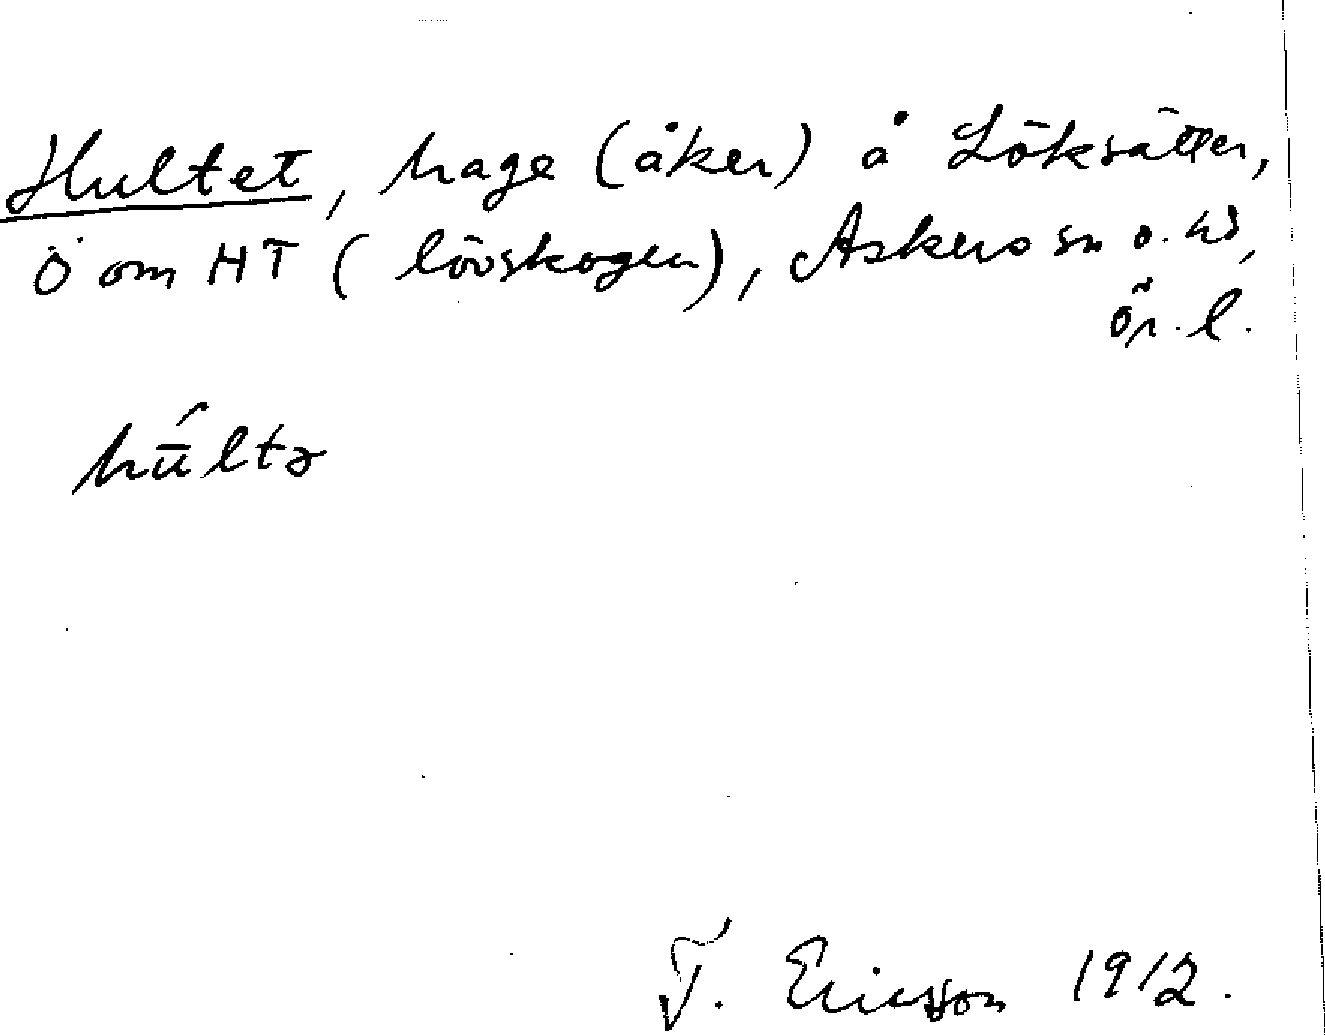 Hultet, hage (åker) å Löksätter,
Ö om HT (lövskogen), Askers sn o. hd,
ör. l.
hu̅́ltə
T. Ericsson 1912.